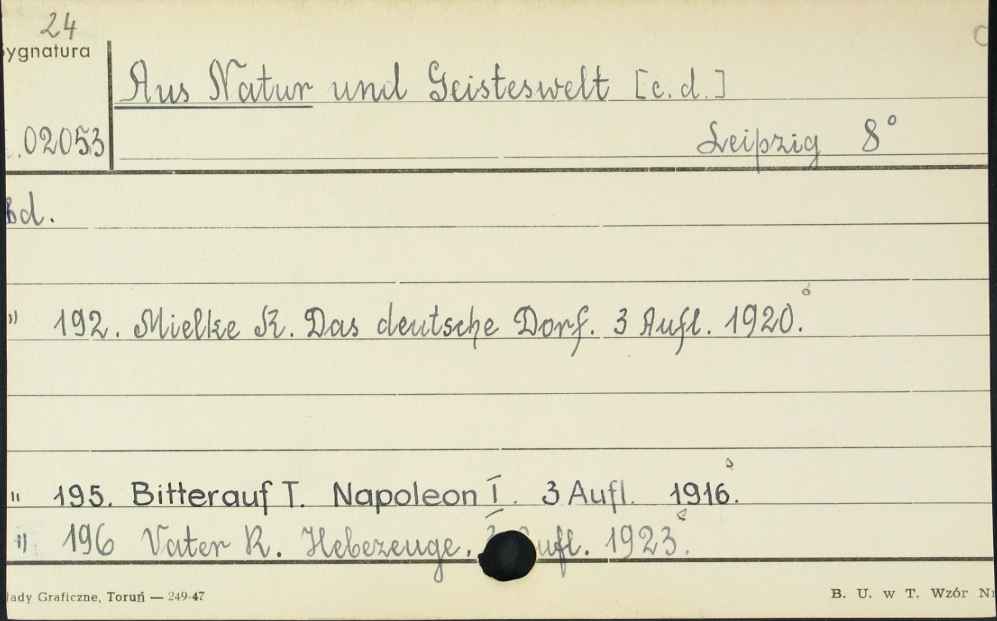 24
ygnatura
Aus Natur und Geisteswelt [c.d.]
.02053
Leipzig 8°
Bd.
" 192. Mielke R. Das deutsche Dorf. 3 Aufl. 1920.
" 195. Bitterauf T. Napoleon I. 3 Aufl. 1916.
" 196 Vater R. Hebezeuge. ufl. 1923.
łady Graficzne, Toruń — 249-47
B. U. w T. Wzór Nr